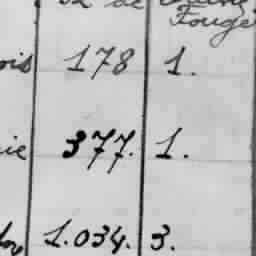 de
Fouge
ois 178 1.
ie 377. 1.
1.034. 3.